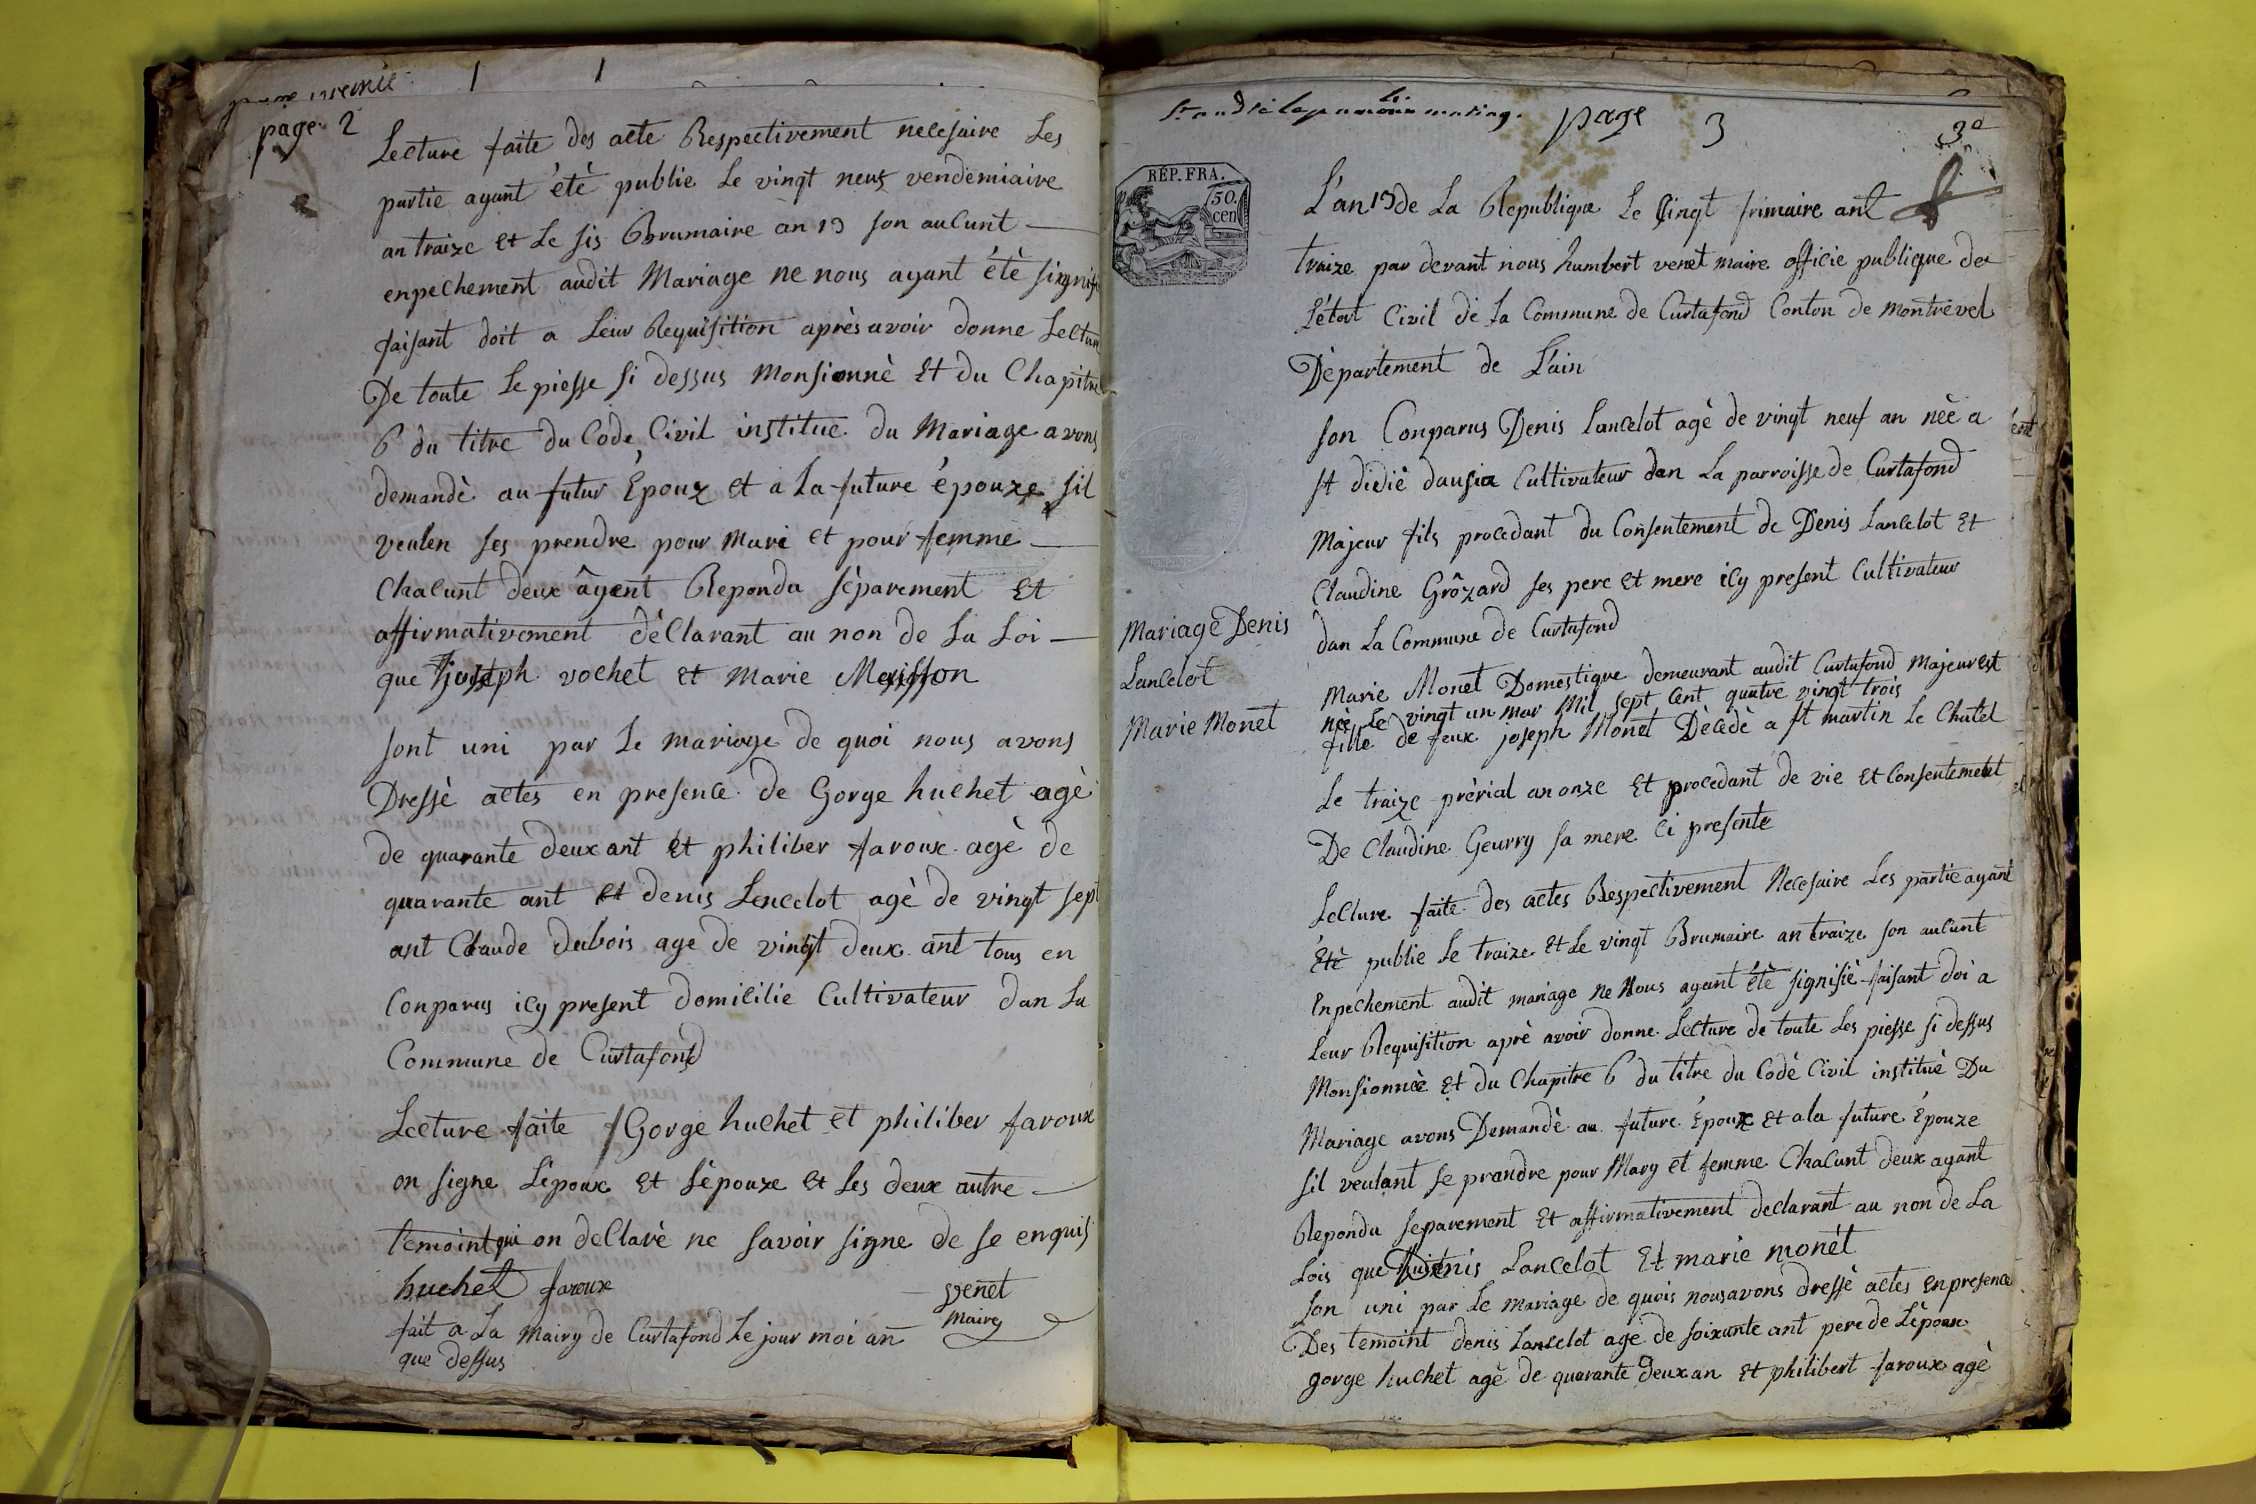 page 2
Lecture faite des acte Respectivement necesaire Les
partie ayant étè publie Le vingt neuf vendemiaire
an traize et Le sis Brumaire an 13 son aucunt
enpechement audit Mariage ne nous ayant étè
faisant doit a Leur Requisition après avoir donne Lecture
De toute Le piesse si dessus Monsionnè Et du Chapitre
6 du titre du Code Civil institue du Mariage avons
demandè au futur Époux et a La future épouze sil
veulen ses prendre pour mari et pour femme
Chacunt deux âyent Repondu séparement Et
affirmativement dèClarant au non de La Loi
que joseph vochet et Marie
sont uni par Le mariage de quoi nous avons
Dressè actes en presence de Gorge huchet agè
de quarante deux ant Et philiber faroux agè de
quarante ant et denis Lencelot agè de vingt sept
ant Claude dubois age de vingt deux ant tous en
Conparus icy present domicilie Cultivateur dan La
Commune de Curtafond
Lecture faite Gorge huchet et philiber faroux
on signe Lèpoux Et Lèpouze et Les deux autre
temoint qui on deClarè ne savoir signe de se enquis
huchet faroux
venet
Maire
fait a La Mairy de Curtafond Le jour moi an
que dessus
page 3
3e
RÉP. FRA.
50.
cen
L'an 13 de La Republique Le Cingt frimaire ant
traize par devant nous humbert venet maire officie publique de
L'état Civil de La Commune de Curtafond Conton de Montrevel
Dèpartement de L'ain
son Conparus Denis Lancelot agè de vingt neuf an nèe a
st didiè dausia Cultivateur dan La parroisse de Curtafond
Majeur fils procedant du Consentement de Denis Lancelot Et
Claudine Grôzard ses pere et mere icy present Cultivateur
dan La Commune de Curtafond
Mariage Denis
Lancelot
Marie Monet
Marie Monet Domestique demeurant audit Curtafond Majeur est
nèe Le vingt un mar Mil sept Cent quatre vingt trois
fille de feux joseph Monet Dècedè a st martin Le Chatel
Le traize prèrial an onze Et procedant de vie et Consentement
De Claudine Geurry sa mere Ci presente
Lecture faite des actes Respectivement Necesaire Les partie ayant
Étè publie Le traize Et Le vingt Brumaire an traize son aucunt
Enpechement audit mariage ne Nous ayant étè signifiè faisant doi a
Leur Requisition aprè avoir donne Lecture de toute Les piesse si dessus
Monsionnèe Et du Chapitre 6 du titre du Codè Civil instituè Du
Mariage avons Demandè au future Époux Et a la future Épouze
sil veulant se prandre pour Mary et femme Chacunt deux ayant
Repondu separement Et affirmativement declarant au non de La
Lois que Denis Lancelot Et marie monèt
son uni par Le mariage de quois nous avons dressè actes en presence
Des temoint denis Lancelot age de soixante ant pere de Lèpoux
gorge huchet agè de quarante deux an Et philibert faroux agè